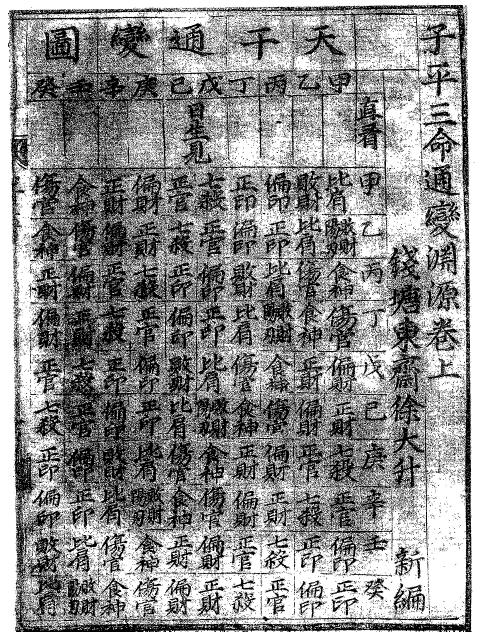 子平三命通變淵源卷上
錢塘東齋徐大升 新編
天干通變圖
甲乙丙丁戊己庚辛壬癸
直看
日生見
甲 比肩 敗財 偏印 正印 七殺 正官 偏財 正財 食神 傷官
乙 敗財陽刃 比肩 正印 偏印 正官 七殺 正財 偏財 傷官 食神
丙 食神 傷官 比肩 敗財 偏印 正印 七殺 正官 偏財 正財
丁 傷官 食神 敗財陽刃 比肩 正印 偏印 正官 七殺 正財 偏財
戊 偏財 正財 食神 傷官 比肩 敗財 偏印 正印 七殺 正官
己 正財 偏財 傷官 食神 敗財陽刃 比肩 正印 偏印 正官 七殺
庚 七殺 正官 偏財 正財 食神 傷官 比肩 敗財 偏印 正印
辛 正官 七殺 正財 偏財 傷官 食神 敗財陽刃 比肩 正印 偏印
壬 偏印 正印 七殺 正官 偏財 正財 食神 傷官 比肩 敗財
癸 正印 偏印 正官 七殺 正財 偏財 傷官 食神 敗財陽刃 比肩